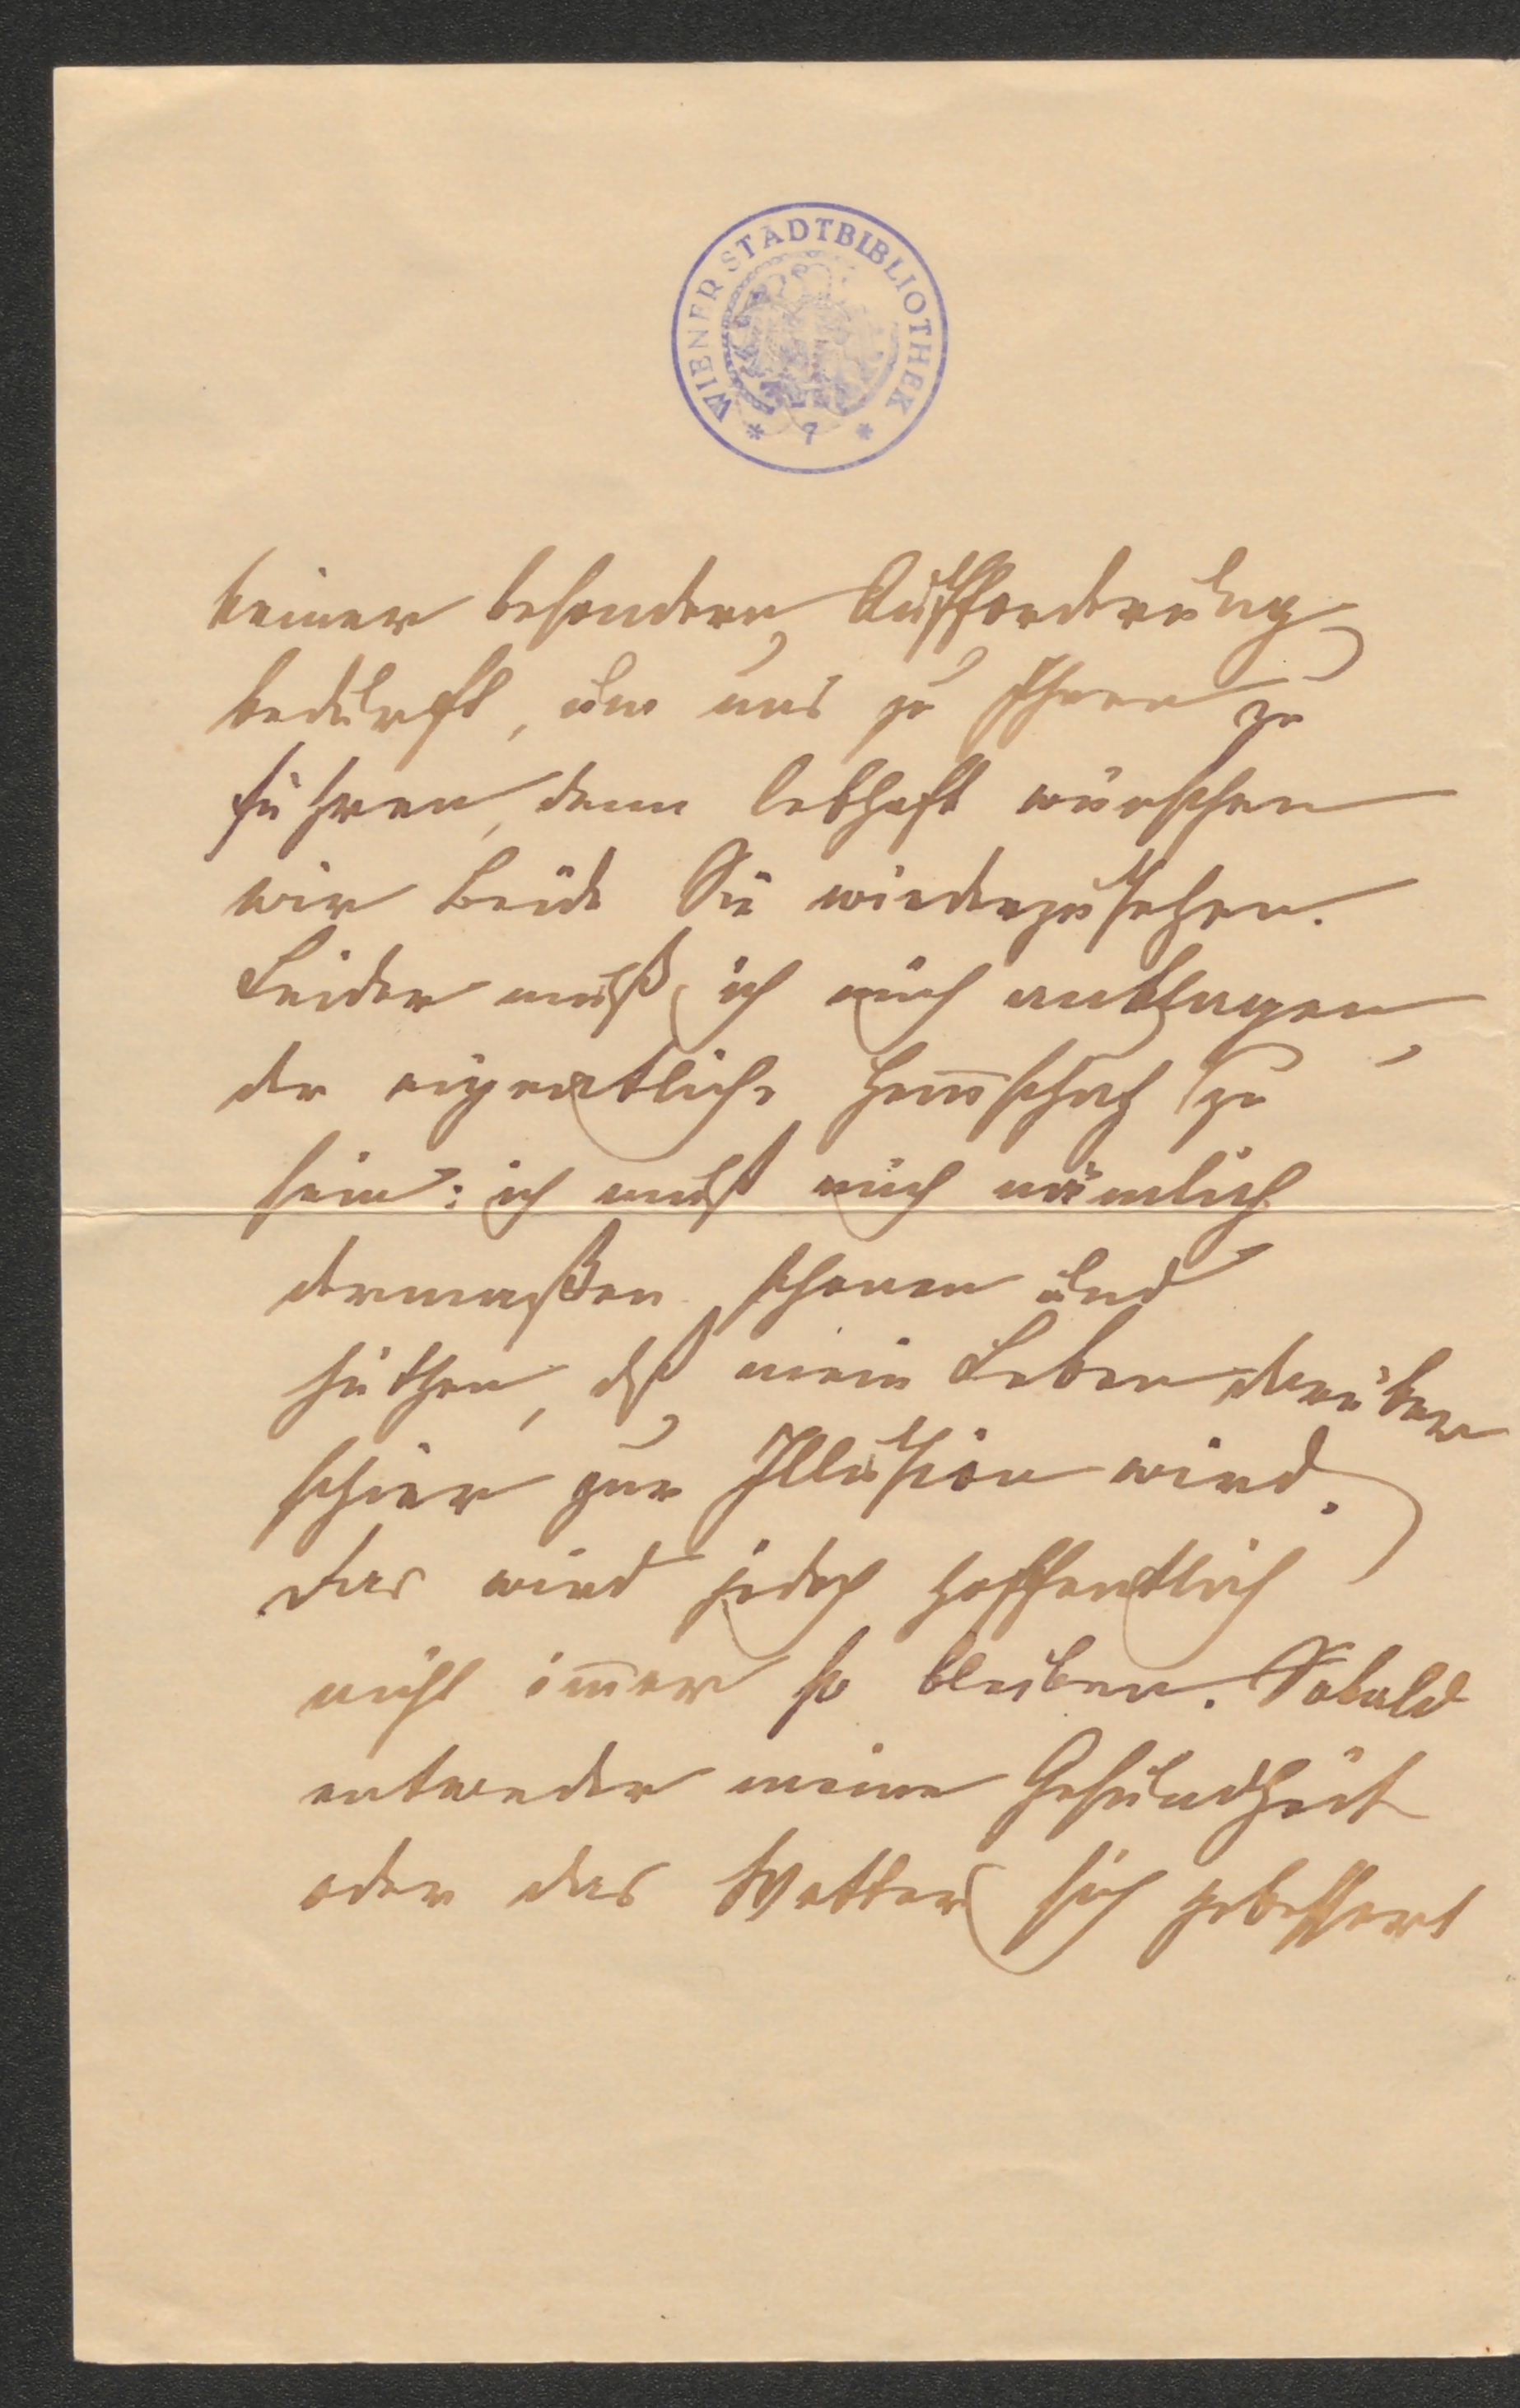 WIENER STADTBIBLIOTHEK
* 7 *
keiner besondern Aufforderung
bedürft, um uns zu Ihnen zu
führen, denn lebhaft wünschen
wir beide Sie wiederzusehen.
Leider muß ich mich anklagen,
der eigentliche Hem̅schuh zu
sein: ich muß mich nämlich
dermaßen schonen und
hüthen, dß mein Leben darüber
schier zur Illusion wird.
Das wird jedoch hoffentlich
nicht im̅er so bleiben. Sobald
entweder meine Gesundheit
oder das Wetter sich gebessert